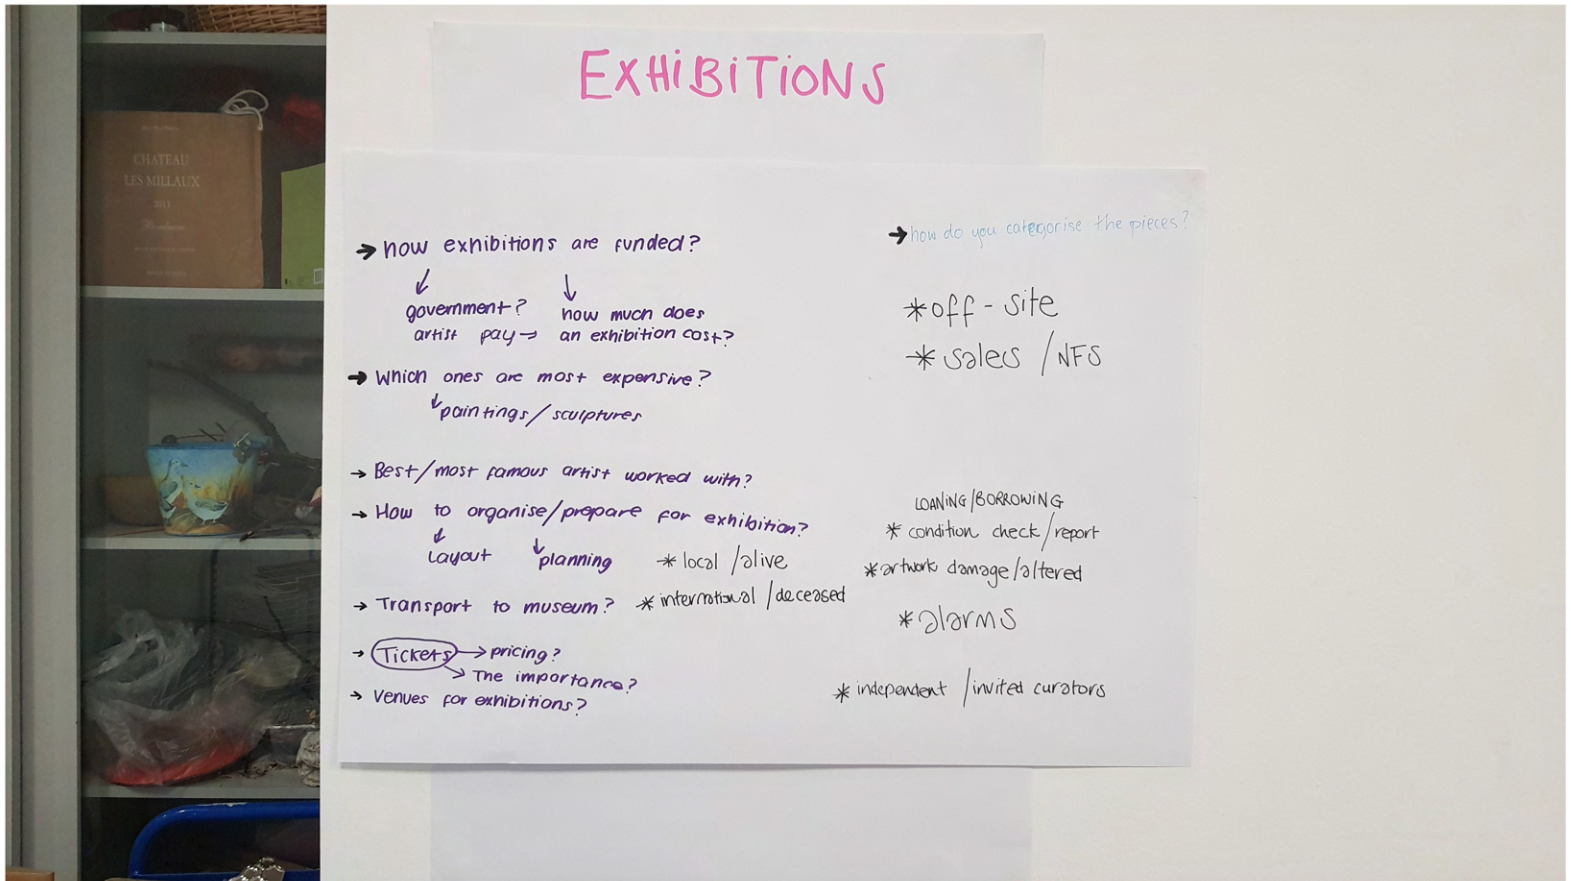 EXHIBITIONS
CHATEAU
LES MILLAUX
2013
→ how exhibitions are funded?
government?
artist pay →
how much does
an exhibition cost?
→ Which ones are most expensive?
paintings/sculptures
→ Best/most famous artist worked with?
→ How to organise/prepare for exhibition?
Layout
planning
→ Transport to museum?
→ Tickets → pricing?
→ The importance?
→ Venues for exhibitions?
* local /alive
* international /deceased
→ how do you categorise the pieces?
* off-site
* sales /NFS
LOANING/BORROWING
* condition check/report
* artwork damage/altered
* alarms
* independent /invited curators